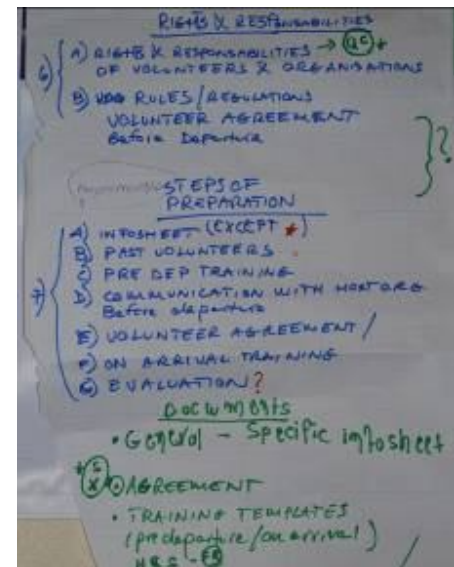 RIGHTS & RESPONSABILITIES
6) A) RIGHTS & RESPONSABILITIES → QC +
OF VOLUNTEERS & ORGANISATIONS
B) RULES/REGULATIONS
VOLUNTEER AGREEMENT
Before Departure
?
STEPS OF
PREPARATION
7) A) INFOSHEET (EXCEPT *)
B) PAST VOLUNTEERS
C) PRE DEP TRAINING
D) COMMUNICATION WITH HOST ORG
Before departure
E) VOLUNTEER AGREEMENT /
F) ON ARRIVAL TRAINING
G) EVALUATION?
DOCUMENTS
• General - Specific infosheet
AGREEMENT
• TRAINING TEMPLATES
(predeparture/on arrival)